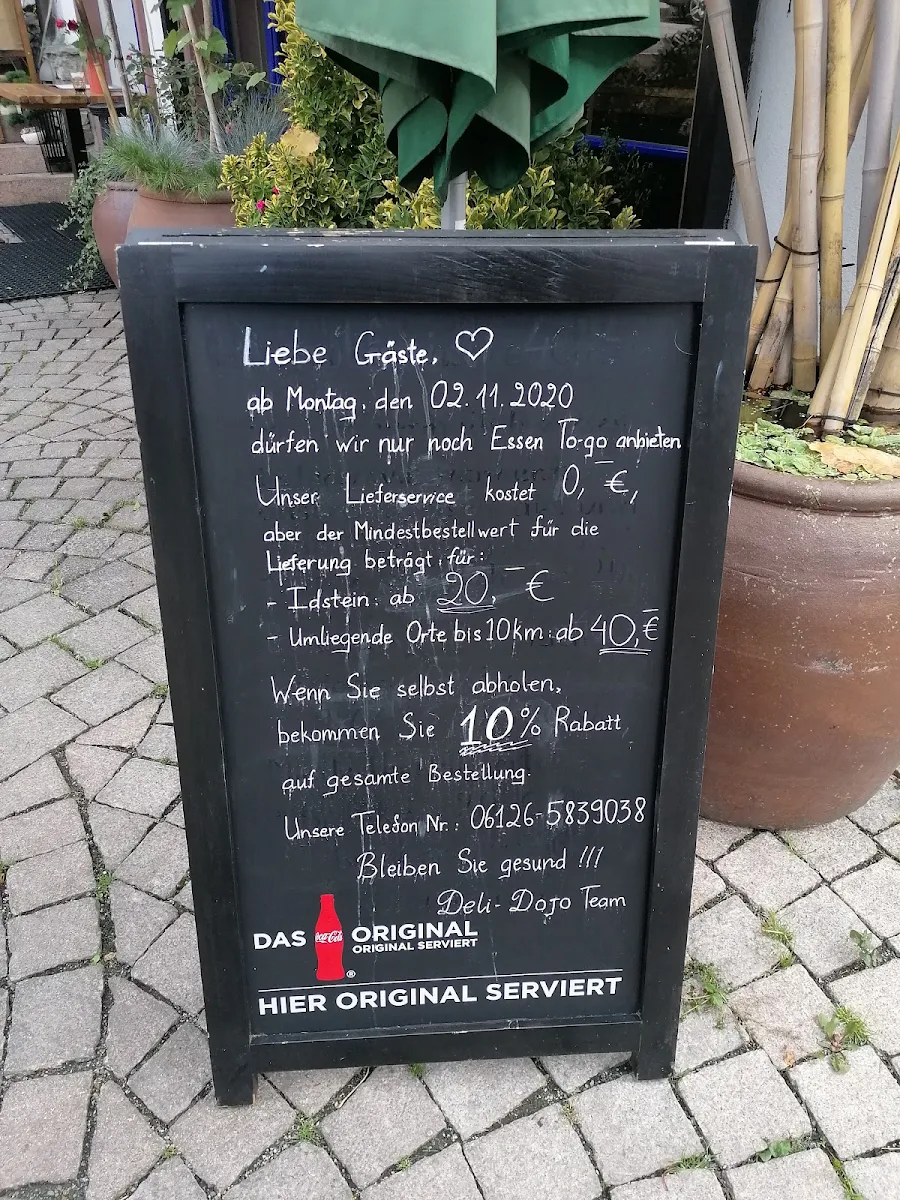 Liebe Gäste, ♡
ab Montag, den 02.11.2020
dürfen wir nur noch Essen To-go anbieten
Unser Lieferservice kostet 0,- €,
aber der Mindestbestellwert für die
Lieferung beträgt für:
- Idstein: ab 20,- €
- Umliegende Orte bis 10km: ab 40,- €
Wenn Sie selbst abholen,
bekommen Sie 10% Rabatt
auf gesamte Bestellung.
Unsere Telefon Nr.: 06126-5839038
Bleiben Sie gesund !!!
Deli-Dojo Team
DAS Coca-Cola ® ORIGINAL
ORIGINAL SERVIERT
HIER ORIGINAL SERVIERT